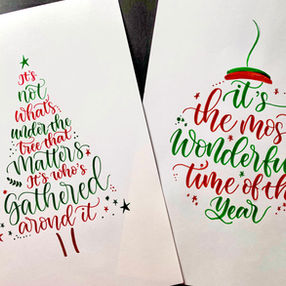 It's
not
what's
under the
tree that
Matters
It's who's
Gathered
arond it
it's
the mos
Wonderfu
time of th
Year